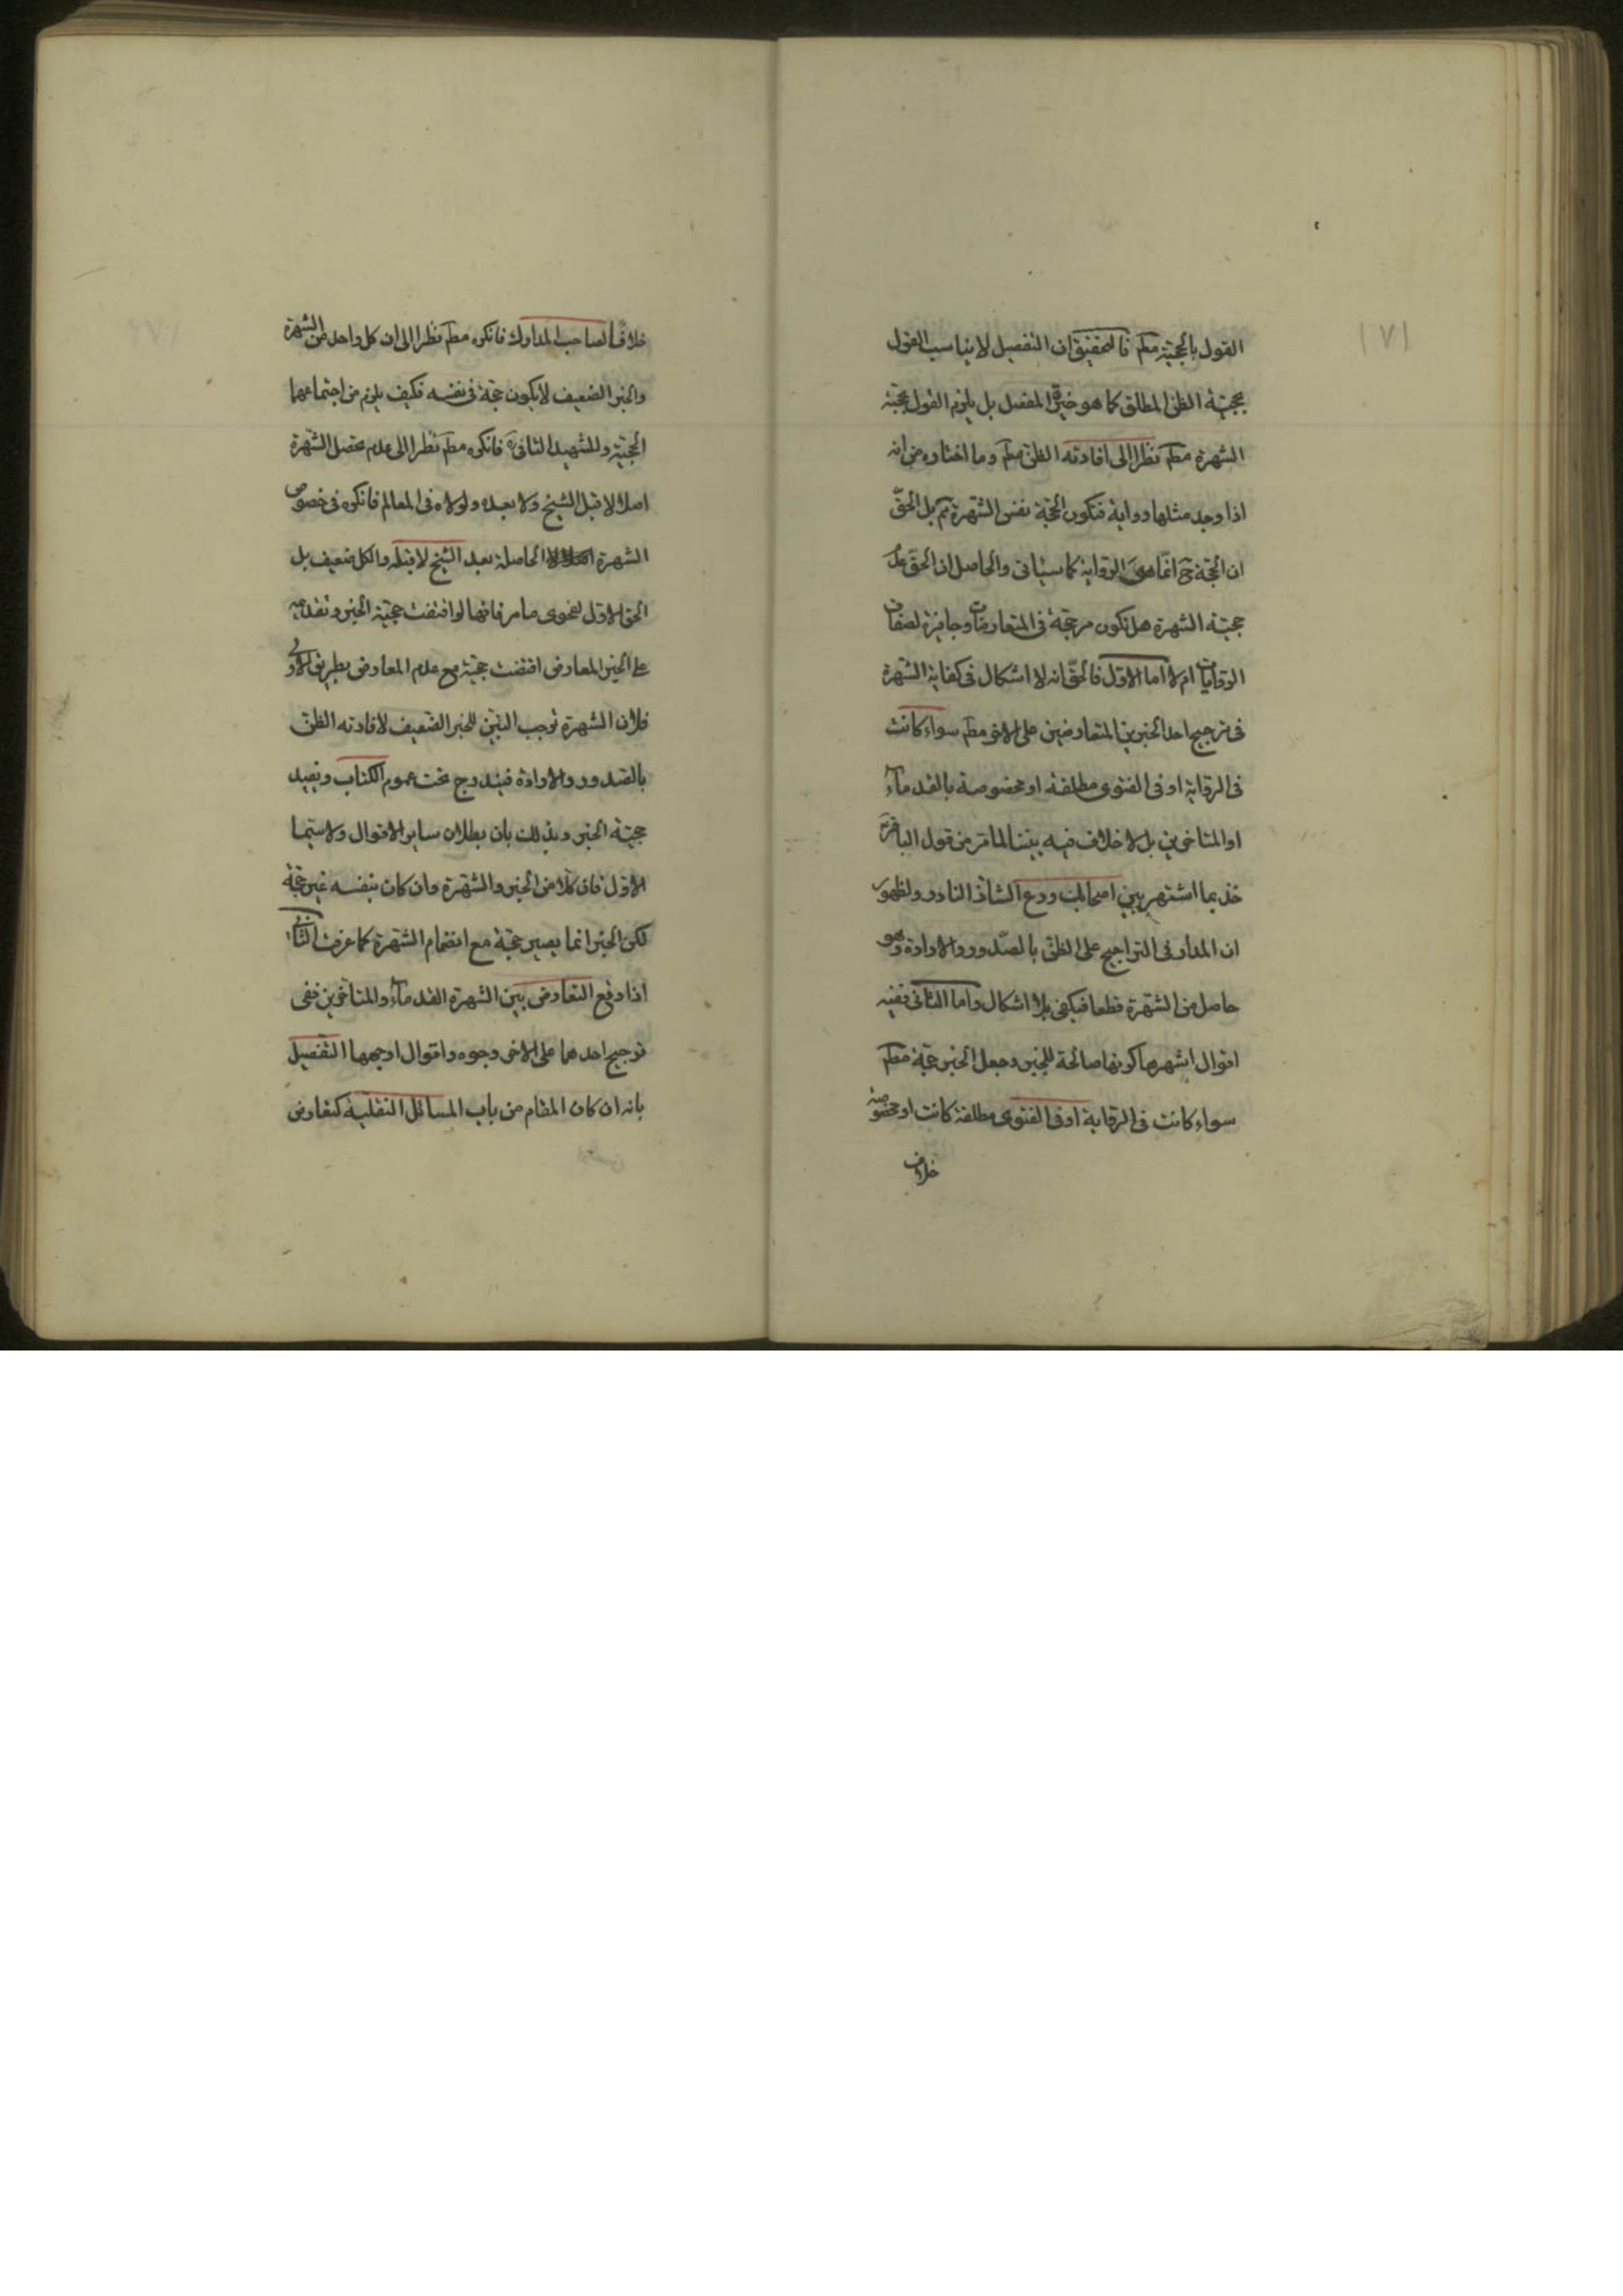 ١٧١
القول بالحجية مطم فالتحقيق ان التفصيل لا يناسب القول
بحجية الظن المطلق كما هو خيرة المفصل بل يلزم القول بحجية
الشهرة مطم نظرا الى افادته الظن مطم وما اختاره من انه
اذا وجد مثلها رواية فتكون الحجة نفس الشهرة ثم بل الحق
ان الحجة ح انما هى الرواية كما سيأتى والحاصل ان الحق عدم
حجية الشهرة هل تكون مرجحة فى المتعارضات وجابرة لضعاف
الروايات ام لا اما الاول فالحق انه لا اشكال فى كفاية الشهرة
فى ترجيح احد الخبرين المتعارضين على الاخر مطم سواء كانت
فى الرواية او فى الفتوى مطلقة او مخصوصة بالقدماء
او المتاخرين بل لا خلاف فيه بيننا لما مر من قول الباقر
خذ بما اشتهر بين اصحابك ودع الشاذ النادر ولظهور
ان المدار فى التراجيح على الظن بالصدور والارادة وهو
حاصل من الشهرة قطعا فيكفى بلا اشكال واما الثانى ففيه
اقوال اشهرها كونها صالحة للجبر وجعل الخبر حجة مطم
سواء كانت فى الرواية او فى الفتوى مطلقة كانت او مخصوصة
خلافا
خلافا لصاحب المدارك فانكره مطم نظرا الى ان كل واحد من الشهرة
والخبر الضعيف لا يكون حجة فى نفسه فكيف يلزم من اجتماعهما
الحجية وللشهيد الثانى ره فانكره مطم نظرا الى عدم تحصل الشهرة
اصلا لا قبل الشيخ ولا بعده ولولاه فى المعالم فانكره فى خصوص
الشهرة الحاصلة بعد الشيخ لا قبله والكل ضعيف بل
الحق الاول لفحوى ما مر فانها لو اقتضت حجية الخبر وتقدمه
على الخبر المعارض اقتضت حجيته مع عدم المعارض بطريق الاولى
فلان الشهرة توجب التبين للخبر الضعيف لافادته الظن
بالصدور والارادة فيندرج تحت عموم الكتاب ويفيد
حجية الخبر وبذلك بان بطلان ساير الاقوال ولاسيما
الاول فان كلا من الخبر والشهرة وان كان بنفسه غير حجة
لكن الخبر انما يصير حجة مع انضمام الشهرة كما عرفت الثانى
اذا وقع التعارض بين الشهرة القدماء والمتاخرين ففى
ترجيح احدهما على الاخر وجوه واقوال اوجهها التفصيل
بانه ان كان المقام من باب المسائل النقلية كتعارض